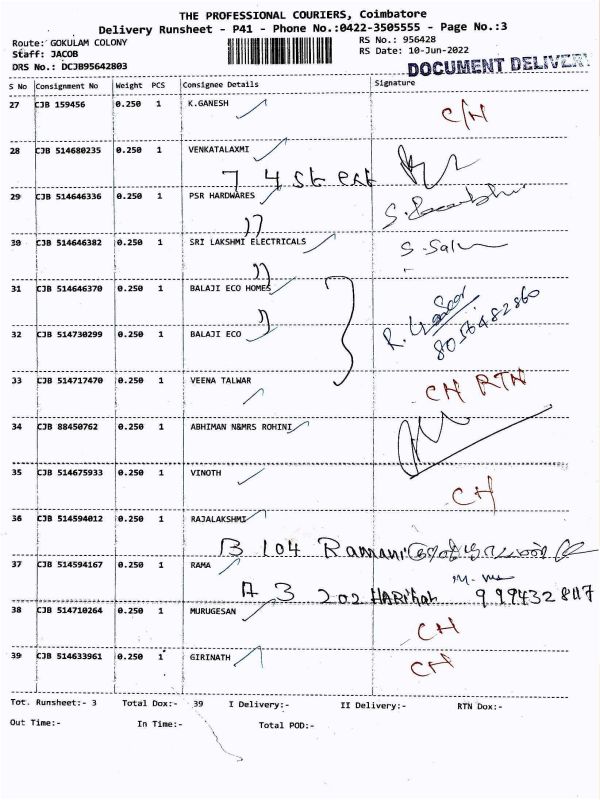 THE PROFESSIONAL COURIERS, Coimbatore
Delivery Runsheet - P41 - Phone No.:0422-3505555 - Page No.:3
Route: GOKULAM COLONY RS No.: 956428
Staff: JACOB RS Date: 10-Jun-2022
DRS No.: DCJB95642803 DOCUMENT DELIVERY
S No Consignment No Weight PCS Consignee Details Signature
27 CJB 159456 0.250 1 K.GANESH C/H
28 CJB 514680235 0.250 1 VENKATALAXMI
7 4 st ext
29 CJB 514646336 0.250 1 PSR HARDWARES
30 CJB 514646382 0.250 1 SRI LAKSHMI ELECTRICALS
31 CJB 514646370 0.250 1 BALAJI ECO HOMES
32 CJB 514730299 0.250 1 BALAJI ECO 8056482860
33 CJB 514717470 0.250 1 VEENA TALWAR CH RTN
34 CJB 88450762 0.250 1 ABHIMAN N&MRS ROHINI
35 CJB 514675933 0.250 1 VINOTH CH
36 CJB 514594012 0.250 1 RAJALAKSHMI
B 104 Ramani
37 CJB 514594167 0.250 1 RAMA
A 3 202 HARihah
38 CJB 514710264 0.250 1 MURUGESAN CH
39 CJB 514633961 0.250 1 GIRINATH CH
Tot. Runsheet:- 3 Total Dox:- 39 I Delivery:- II Delivery:- RTN Dox:-
Out Time:- In Time:- Total POD:-